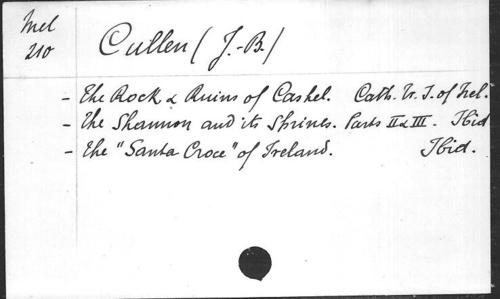 Mel
210
Cullen (J.-B.)
- The Rock & Ruins of Cashel. Cath. Tr. S. of Irel.
- The Shannon and its Shrines. Parts II & III. Ibid
- The "Santa Croce" of Ireland. Ibid.